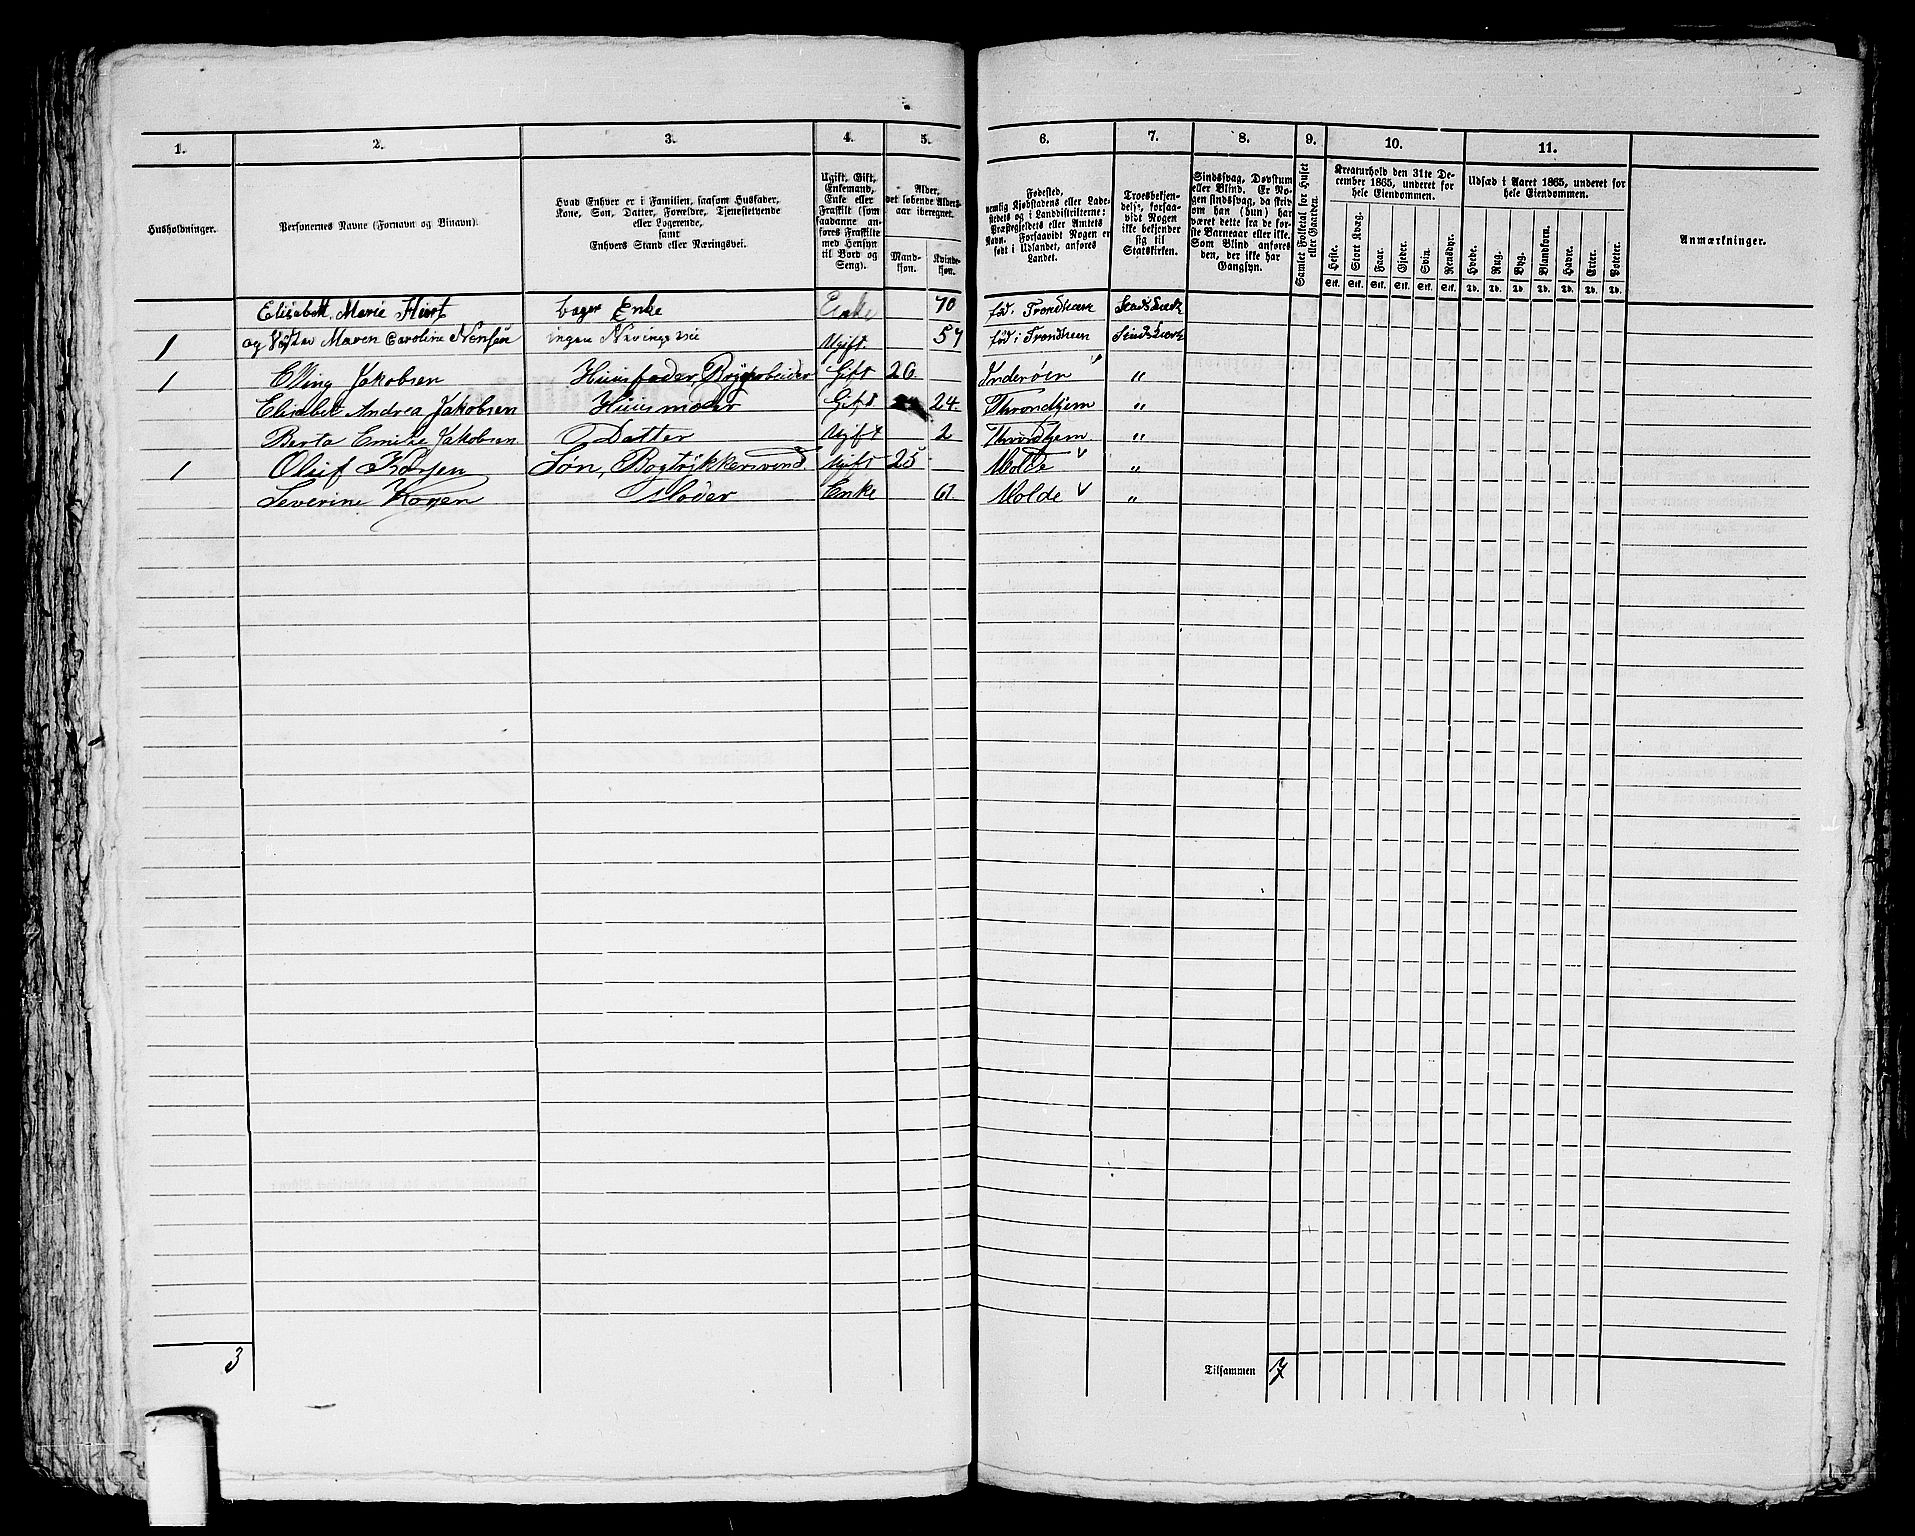 1. 2. 3. 4. 5. 6. 7. 8. 9. 10. 11.
Husholdninger.
Personernes Navne (Fornavn og Binavn).
Hvad Enhver er i Familien, saasom Husfader,
Kone, Søn, Datter, Forældre, Tjenestetyende
eller Logerende,
samt
Enhvers Stand eller Næringsvei.
Ugift, Gift,
Enkemand,
Enke eller
Fraskilt (som
saadanne an-
føres Fraskilte
med Hensyn
til Bord og
Seng).
Alder,
det løbende Alders-
aar iberegnet.
Mand-
kjøn.
Kvinde-
kjøn.
Fødested,
nemlig Kjøbstadens eller Lade-
stedets og i Landdistrikterne:
Præstegjeldets eller Amtets
Navn. Forsaavidt Nogen er
født i Udlandet, anføres
Landet.
Troesbekjen-
delse, forsaa-
vidt Nogen
ikke bekjender
sig til
Statskirken.
Sindssvag, Døvstum
eller Blind. Er No-
gen sindssvag, da skriv
om han (hun) har
været dette fra de før-
ste Barneaar eller ikke.
Som Blind anføres
den, der ikke har
Gangsyn.
Samlet Folketal for Huset
eller Gaarden.
Kreaturhold den 31te De-
cember 1865, underet for
hele Eiendommen.
Heste. Stort Kvæg. Faar. Gjeder. Svin. Rensdyr.
Stk. Stk. Stk. Stk. Stk. Stk.
Udsæd i Aaret 1865, underet for
hele Eiendommen.
Hvede. Rug. Byg. Blandkorn. Havre. Erter. Poteter.
Td. Td. Td. Td. Td. Td. Td.
Anmærkninger.
Elisabeth Marie Enke Enke 70 fød i Trondheem
1 og Maren Caroline ingen Næringsvei Ugift 57 fød i Trondheem
1 Elling Jakobsen Huusfader, Gift 26. Inderøen "
Elisabet Andrea Jakobsen Huusmoder Gift 24. Throndhjem "
Berta Emilie Jakobsen Datter Ugift 2 Throndhjem "
1 Oluf Søn, Bogtrykkersvend Ugift 25 Molde "
Severine Moder Enke 61. Molde "
3 Tilsammen 7